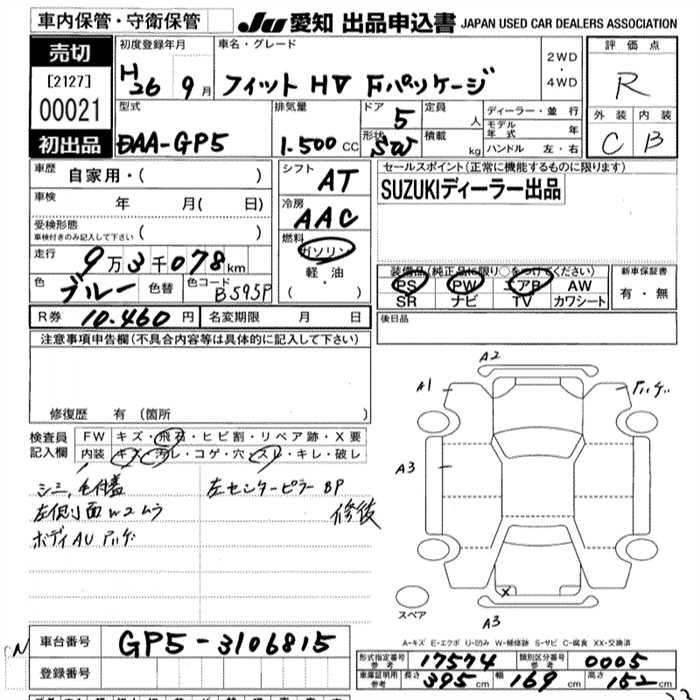 車内保管・守衛保管
JU 愛知 出品申込書 JAPAN USED CAR DEALERS ASSOCIATION
売切
[2127]
00021
初出品
初度登録年月
H26 9月
車名・グレード
フィット HV Fパッケージ
2WD
・
4WD
評価点
R
外装 内装
C B
型式
DAA-GP5
排気量
1.500 CC
ドア 5
形状 SW
定員 人
積載 kg
ディーラー・並行
モデル年式 年
ハンドル 左・右
車歴 自家用・( )
車検 年 月( 日)
受検形態
車検付きのみ記入して下さい ( )
走行 9万3千078km
色 ブルー 色替 色コード B595P
シフト AT
冷房 AAC
燃料 ガソリン
軽・油
( ・ )
セールスポイント(正常に機能するものに限ります)
SUZUKIディーラー出品
装備品(純正品に限り○をつけてください)
PS PW エアB AW
SR ナビ TV カワシート
新車保証書
有・無
R券 10.460円 名変期限 月 日
後日品
注意事項申告欄(不具合内容等は具体的に記入して下さい)
修復歴 有 (箇所 )
検査員記入欄
FW キズ・飛石・ヒビ割・リペア跡・X要
内装 キズ・汚レ・コゲ・穴・スレ・キレ・破レ
左センターピラー BP
修復
左側面 W2ムラ
ボディAU アリ
A2
A1
A3
スペア
A3
A-キズ E-エクボ U-凹み W-補修跡 S-サビ C-腐食 XX-交換済
車台番号 GP5-3106815
登録番号
形式指定番号 参考 17574
類別区分番号 参考 0005
車庫証明用 参考 長さ 395cm 幅 169cm 高さ 152cm